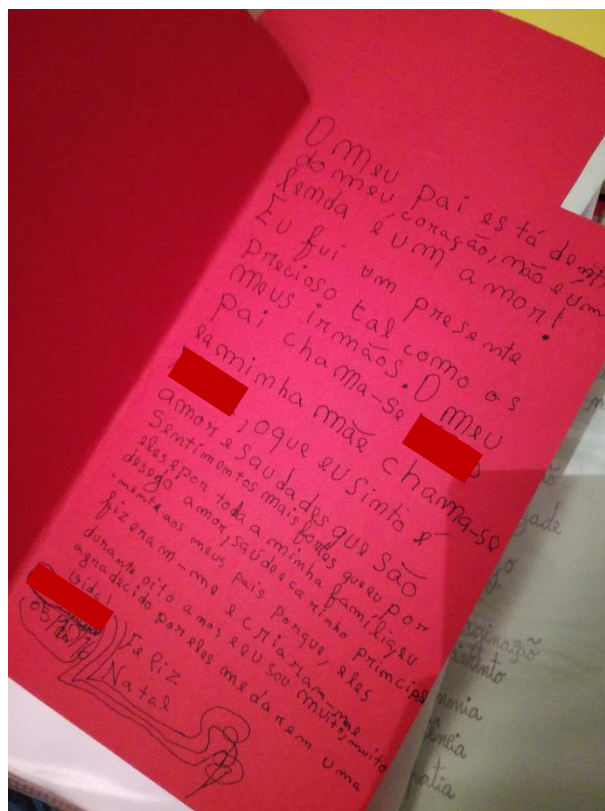 O meu pai está dentr
do meu coração, não é um
lenda é um amor!
Eu fui um presente
precioso tal como os
meus irmãos. O meu
pai chama-se
ea minha mãe chama-se
, oque eu sinto é
amor e saudades que são
Sentimentos mais fortes queeu por
eles e por toda a minha família eu
desejo amor, saúde e carinho principal
-mente aos meus pais porque, eles
fizeram-me e criaram-me
durante oito anos e eu sou muito muito
agradecido por eles me darem uma
vida!
05/12/16
Feliz
Natal
ão
dade
o
aginação
cimento
monia
ância
patia